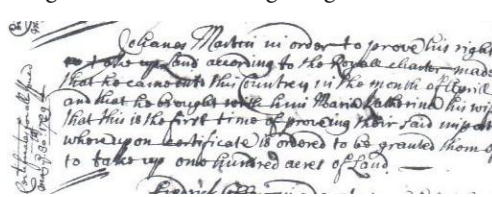 Johanes Martin in order to prove his right
to take up Land according to the Royall charter made
that he came into this Countrey in the month of April
and that he brought with him Maria Katherina his wi
that this is the first time of proveing their said importa
whereupon certificate is ordered to be granted them o
to take up one hundred acres of Land.